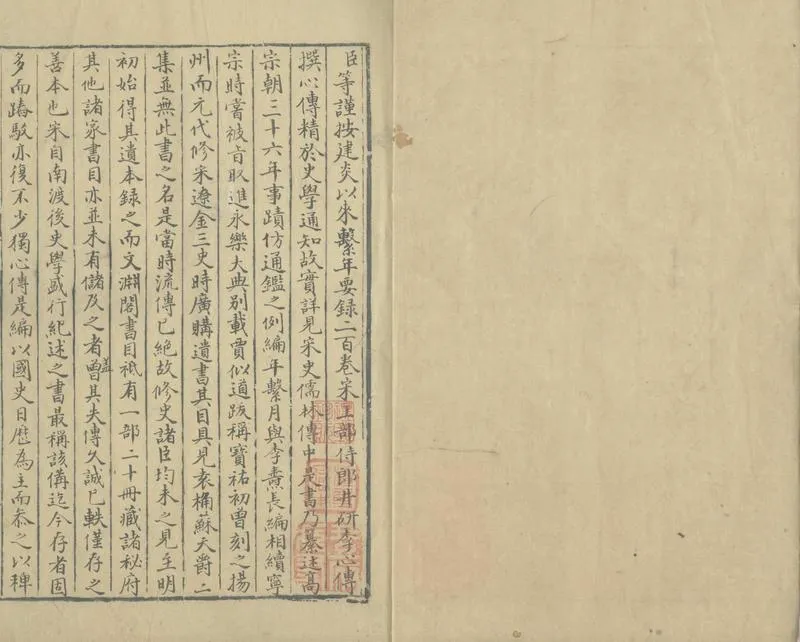 臣等謹按建炎以來繫年要録二百卷宋工部侍郎井研李心傳
撰心傳精於史學通知故實詳見宋史儒林傳中是書乃纂述髙
宗朝三十六年事蹟仿通鑑之例編年繫月與李燾長編相續寧
宗時嘗被旨取進永樂大典别載賈似道跋稱寳祐初曾刻之揚
州而元代修宋遼金三史時廣購遺書其目具見袁桷蘇天爵二
集並無此書之名是當時流傳已絶故修史諸臣均未之見至明
初始得其遺本録之而文淵閣書目祗有一部二十冊藏諸秘府
其他諸家書目亦並未有儲及之者蓋曾其夫傳久誠已軼僅存之
善本也宋自南渡後史學盛行紀述之書最稱該備迄今存者固
多而踳駁亦復不少獨心傳是編以國史日歴為主而叅之以稗